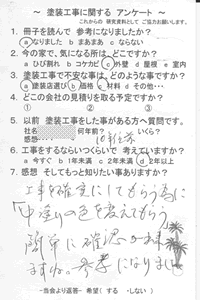 ～ 塗装工事に関する アンケート ～
これからの 研究資料として ご協力お願いします。
1. 冊子を読んで 参考になりましたか?
a なりました b まあまあ c ならない
2. 今の家で、気になる所は、どこですか?
a ひび割れ b コケカビ c 外壁 d 屋根 e 室内
3. 塗装工事で不安な事は、どのような事ですか?
a 塗装店選び b 価格 c 材料 d その他･･･
4. どこの会社の見積りを取る予定ですか?
5. 以前 塗装工事をした事がある方へ質問です。
社名 何年前? いくら?
感想･･･
6. 工事をするならいつくらいで 考えていますか?
a 今すぐ b 1年未満 c 2年未満 d 2年以上
7. 感想 そしてもっと知りたい事ありますか?
工事を確実にしてもらう為に
「中塗りの色を変えてもらう
簡単に確認が出来
ますね。参考になりました
-当会より返答- 希望( する ・しない )